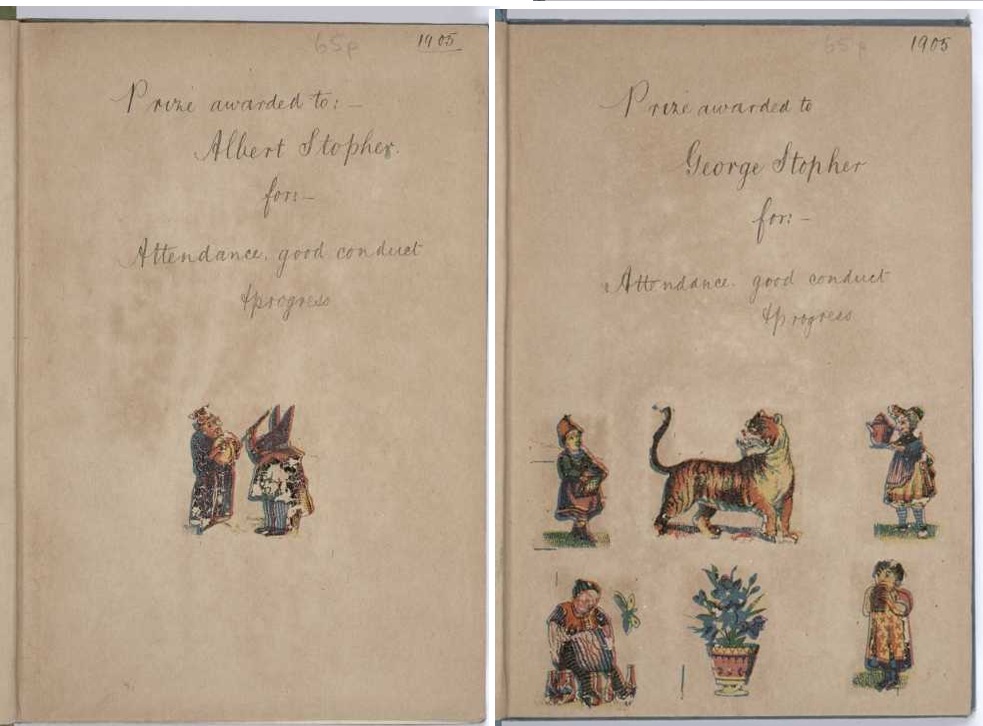 65p 1905
Prize awarded to:-
Albert Stopher.
for:-
Attendance, good conduct
&progress
65p 1905
Prize awarded to
George Stopher
for:-
Attendance. good conduct
&progress